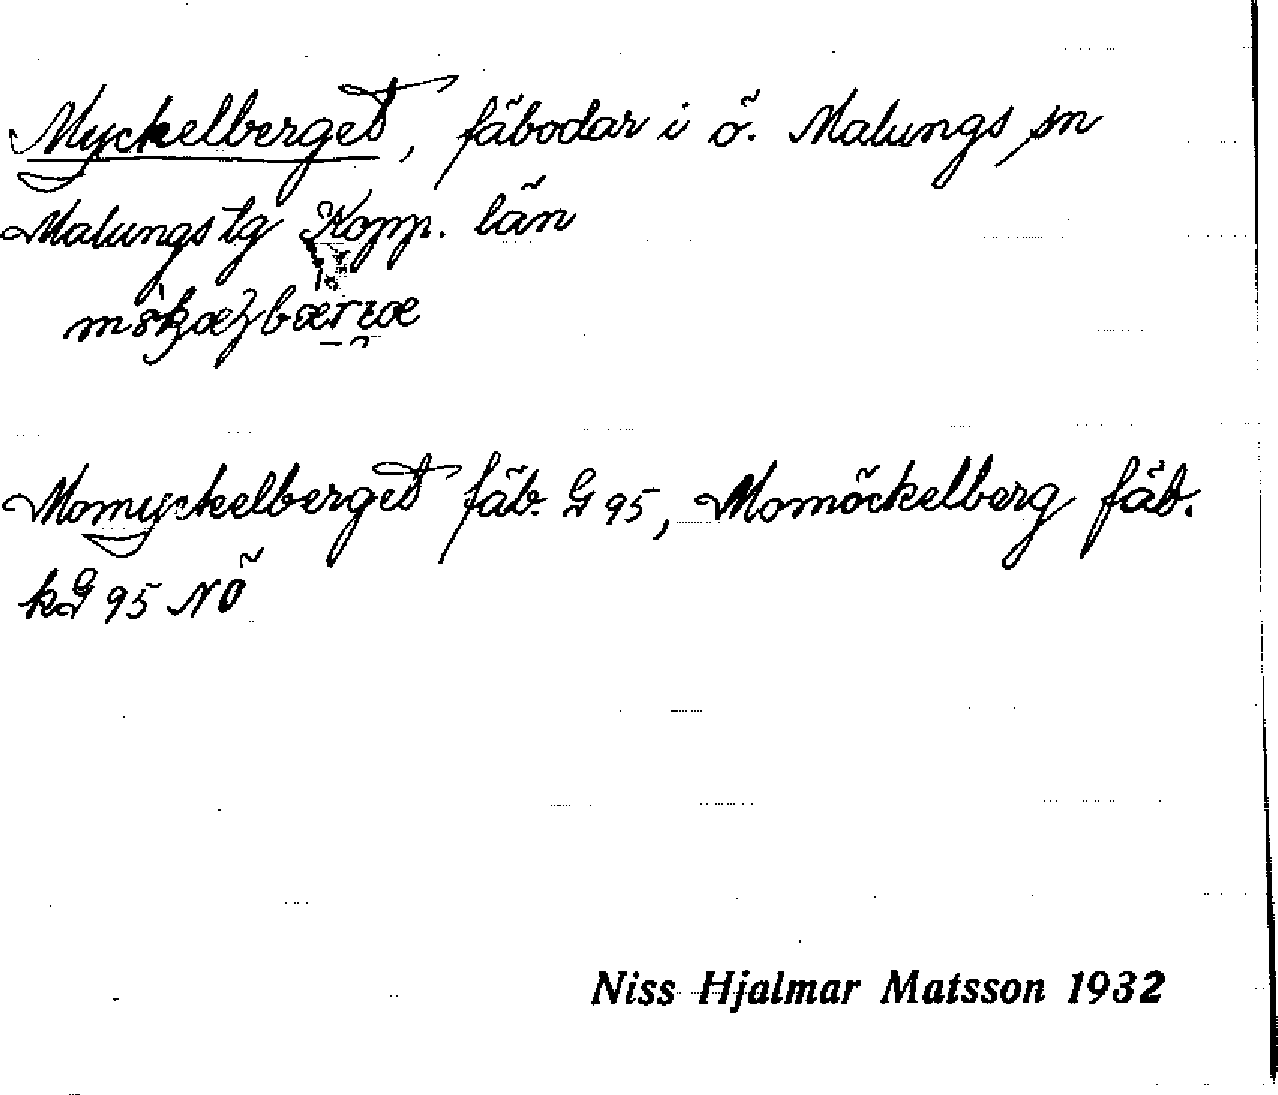 Myckelberget, fäbodar i ö. Malungs sn
Malungs tg Kopp. län
Momyckelberget fäb. G 95, Momöckelberg fäb.
kG 95 NÖ
Niss Hjalmar Matsson 1932